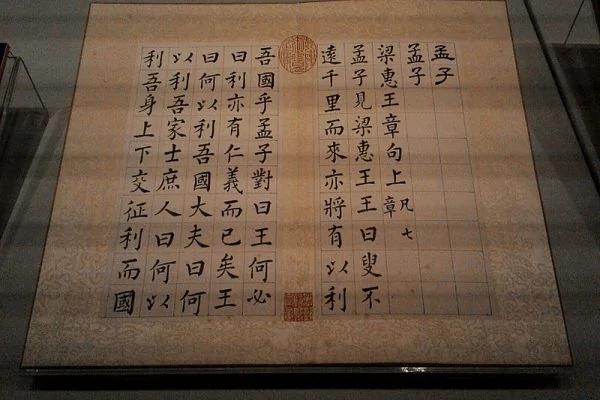 孟子
孟子
梁惠王章句上凡七章
孟子見梁惠王王曰叟不
遠千里而來亦將有以利
吾國乎孟子對曰王何必
曰利亦有仁義而已矣王
曰何以利吾國大夫曰何
以利吾家士庶人曰何以
利吾身上下交征利而國